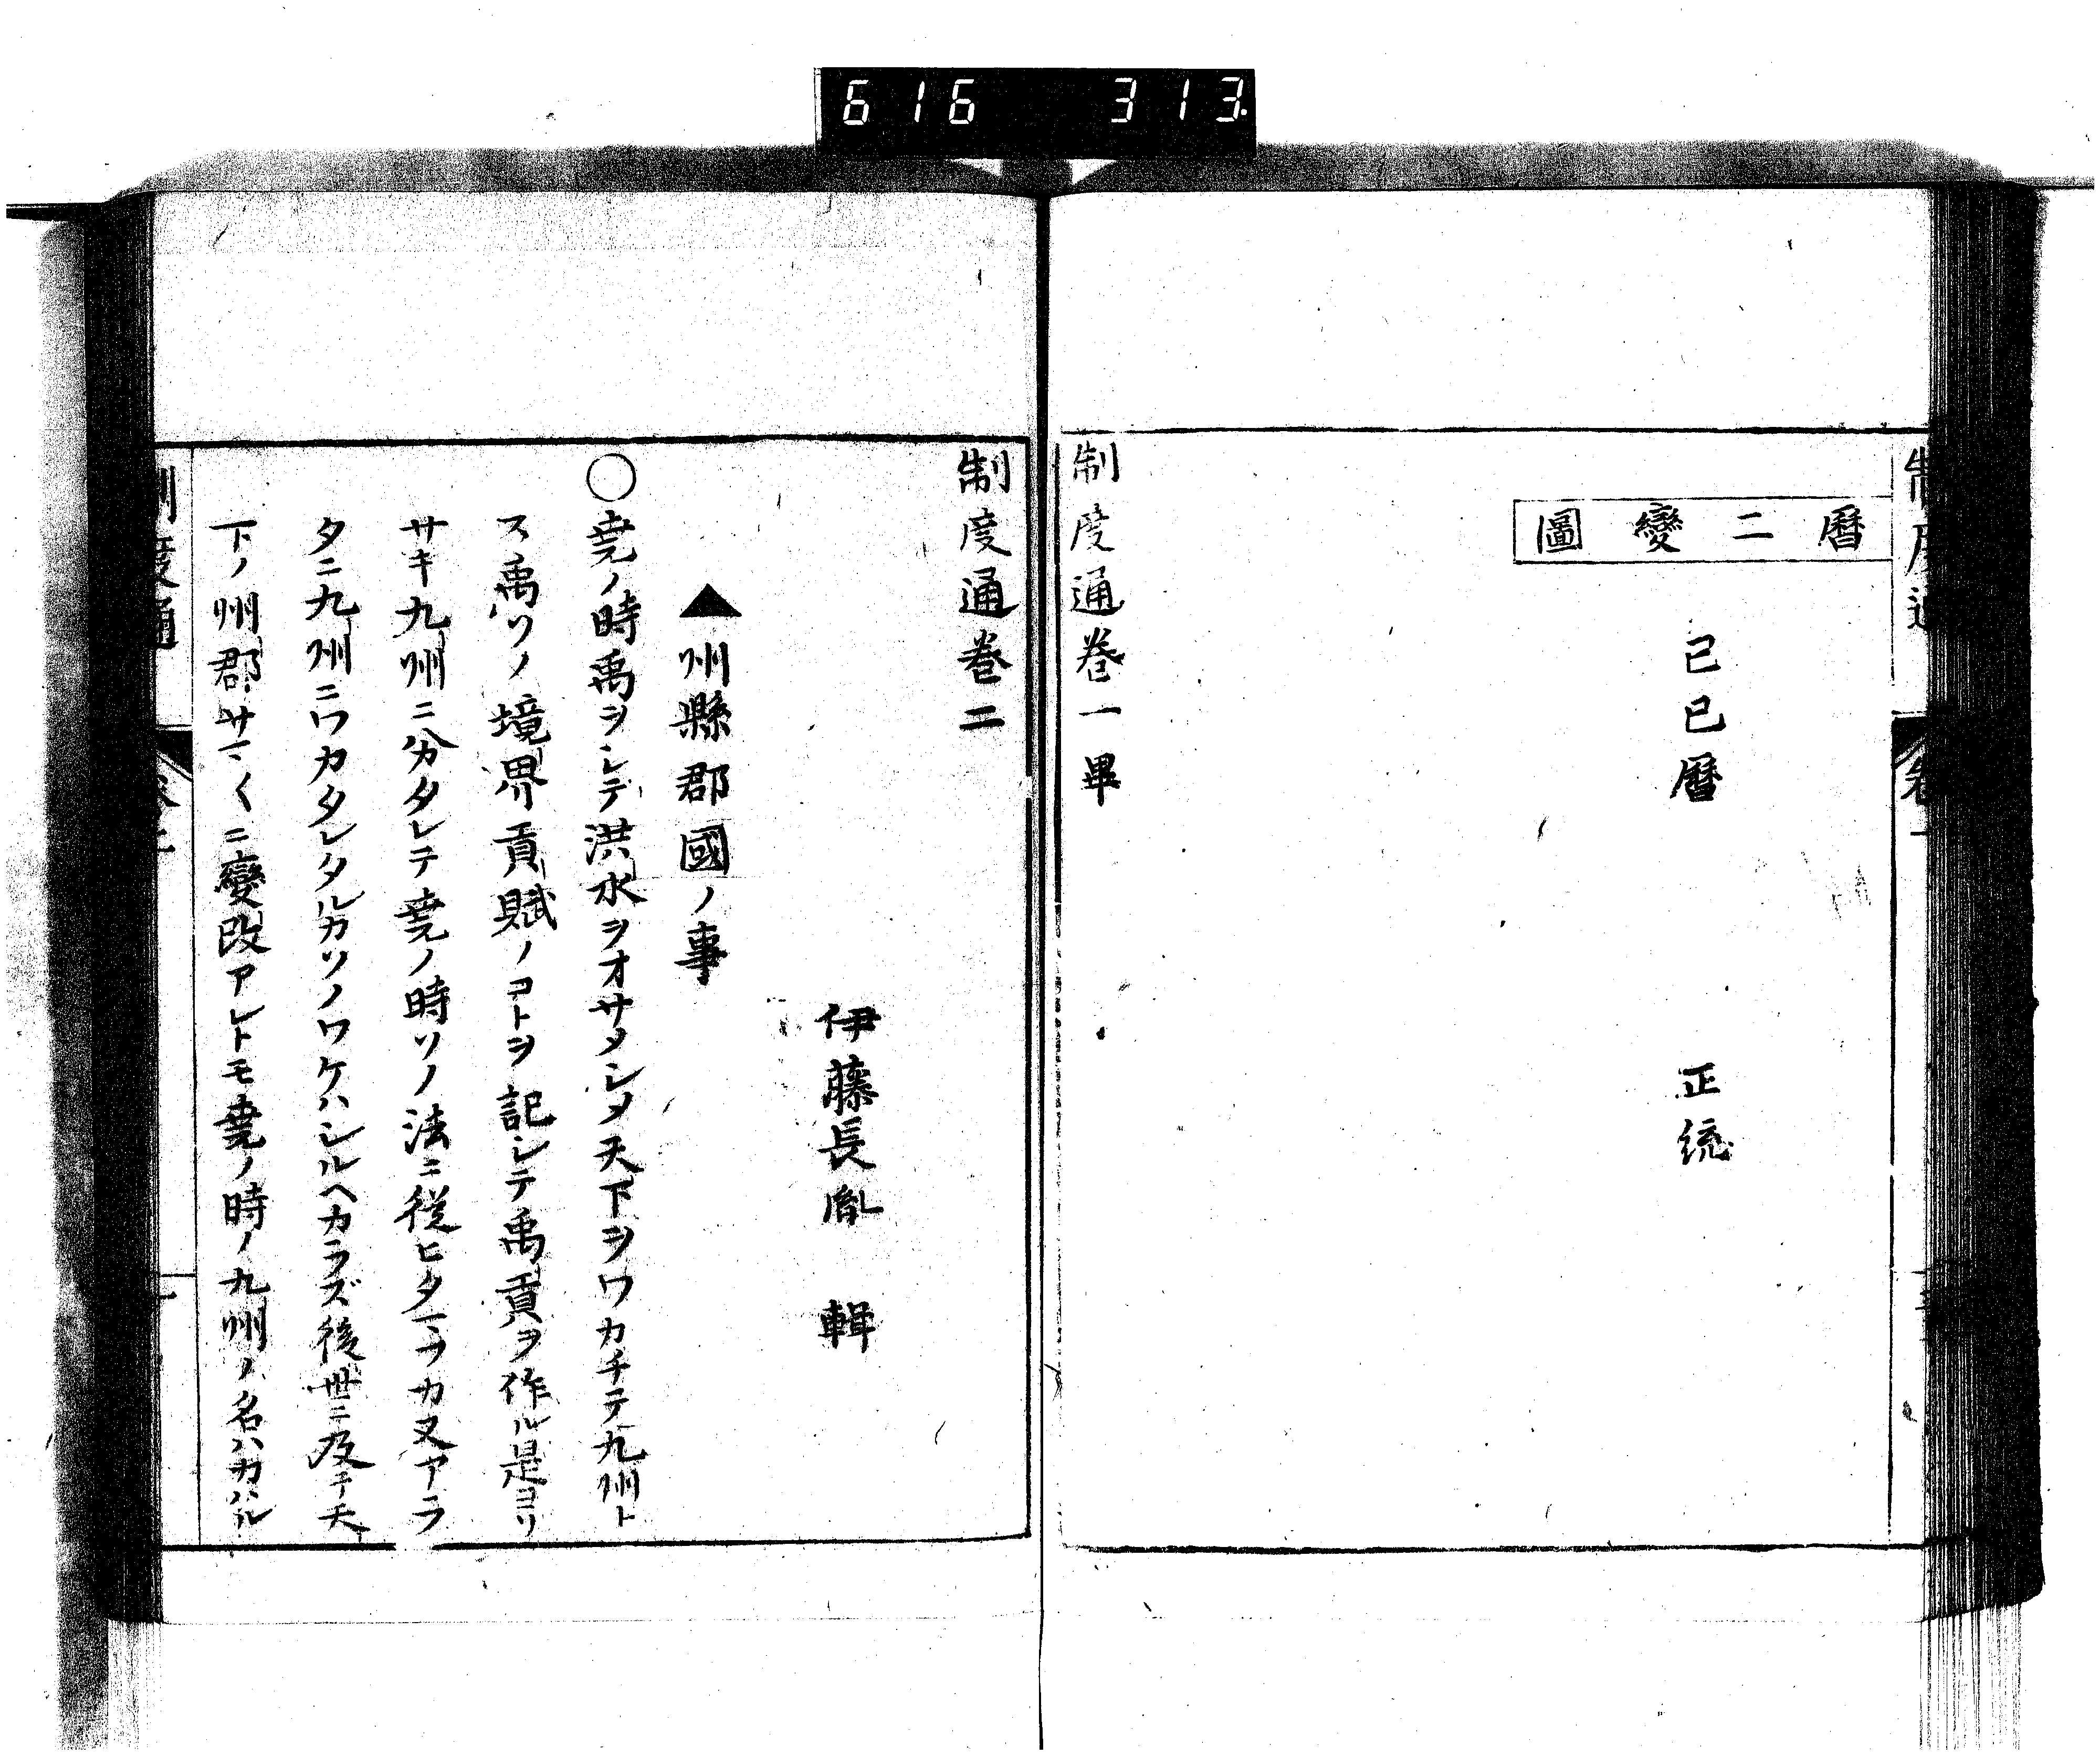 616 313
暦二變圖
己巳暦 正統
制度通巻一畢
制度通巻二
伊藤長胤 輯
▲州縣郡國ノ事
○堯ノ時禹ヲシテ洪水ヲオサメシメ天下ヲワカチテ九州ト
ス禹ソノ境界貢賦ノコトヲ記シテ禹貢ヲ作ル是ヨリ
サキ九州ニ分タレテ堯ノ時ソノ法ニ従ヒタマフカ又アラ
タニ九州ニワカタレタルカソノワケハシルヘカラズ後世ニ及テ天
下ノ州郡サマ〱ニ變改アレトモ堯ノ時ノ九州ノ名ハカハル